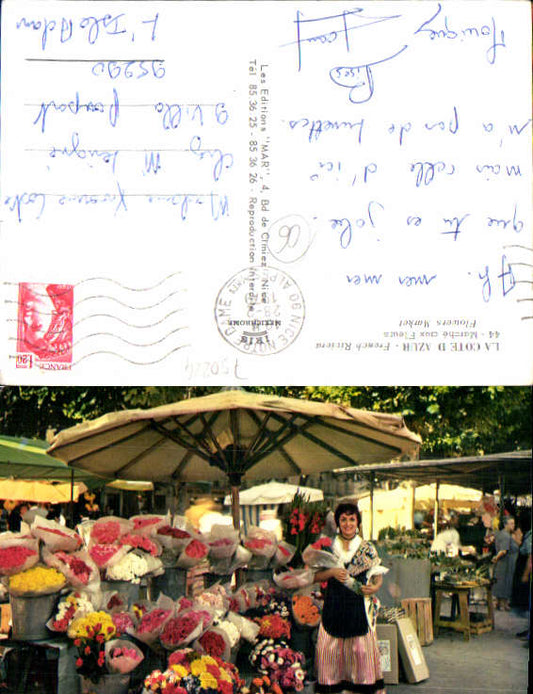 LA COTE D'AZUR - French Riviera
44 - Marché aux Fleurs
Flowers Market
Ah. mer mer
que tu es jolie.
mais celle d'ici
n'a pas de lunettes.
Bises
Jean
Monique
Les Editions "MAR", 4, Bd de Cimiez, Nice
Tél 85 36 25 - 85 36 26 - Reproduction interdite
MEXICHROME
06 NICE NOTRE DAME
1,20
FRANCE
Madame
Chez M
9 Villa
95290
L'Isle Adam
06